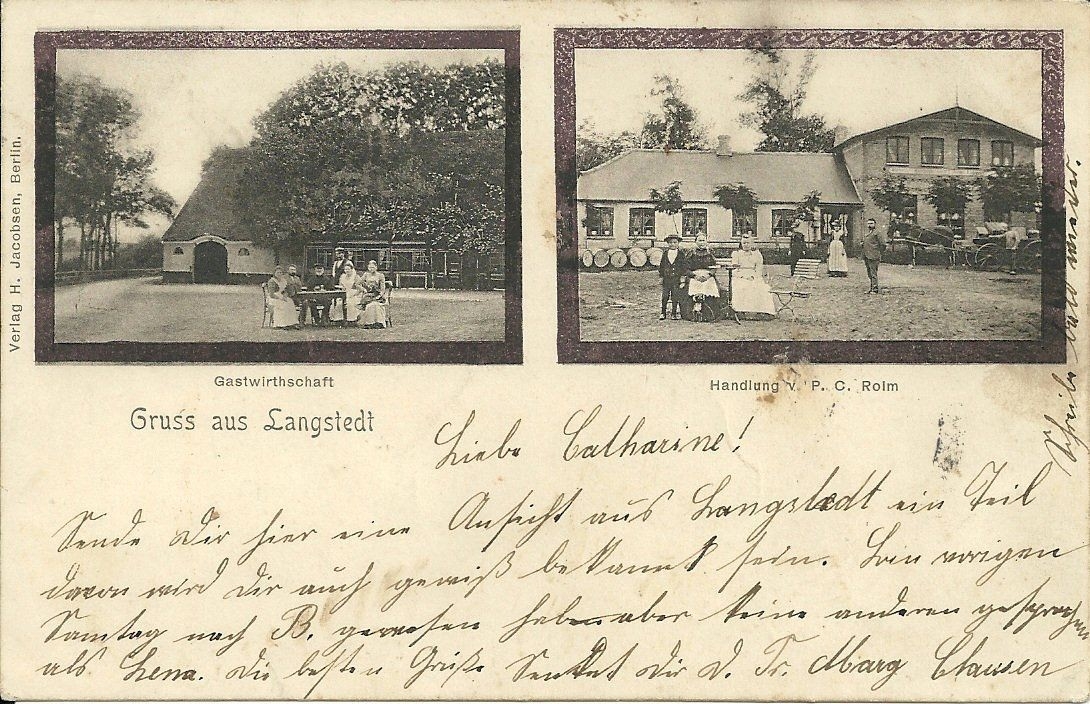 Verlag H. Jacobsen, Berlin.
Gastwirthschaft
Handlung v. P. C. Rolm
Gruss aus Langstedt
Liebe Catharine!
Sende Dir hier eine Ansicht aus Langstedt ein Teil
davon wird Dir auch gewiß bekannt sein. Bin vorigen
Samtag nach B. gewesen habe aber keine anderen gesprochen
als Lena. Die besten Grüße Sendet Dir D. Fr. Marg Clausen
Schreibe bald mal